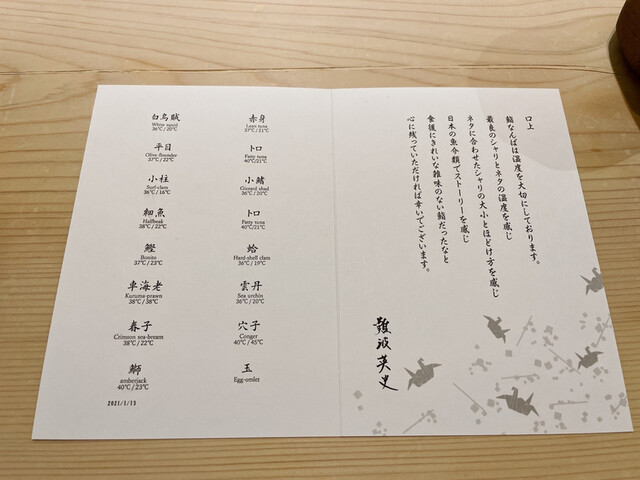 白烏賊
White squid
36℃/20℃
平目
Olive flounder
37℃/22℃
小柱
Surf-clam
36℃/16℃
細魚
Halfbeak
38℃/22℃
鰹
Bonito
37℃/23℃
車海老
Kuruma-prawn
38℃/38℃
春子
Crimson sea-bream
38℃/22℃
鰤
amberjack
40℃/23℃
2021/1/13
赤身
Lean tuna
37℃/21℃
トロ
Fatty tuna
40℃/21℃
小鰭
Gizzard shad
36℃/20℃
トロ
Fatty tuna
40℃/21℃
蛤
Hard-shell clam
36℃/19℃
雲丹
Sea urchin
36℃/20℃
穴子
Conger
40℃/45℃
玉
Egg-omlet
口上
鮨なんばは温度を大切にしております。
最良のシャリとネタの温度を感じ
ネタに合わせたシャリの大小とほどけ方を感じ
日本の魚介類でストーリーを感じ
食後にきれいな雑味のない鮨だったなと
心に残っていただければ幸いでございます。
難波英史